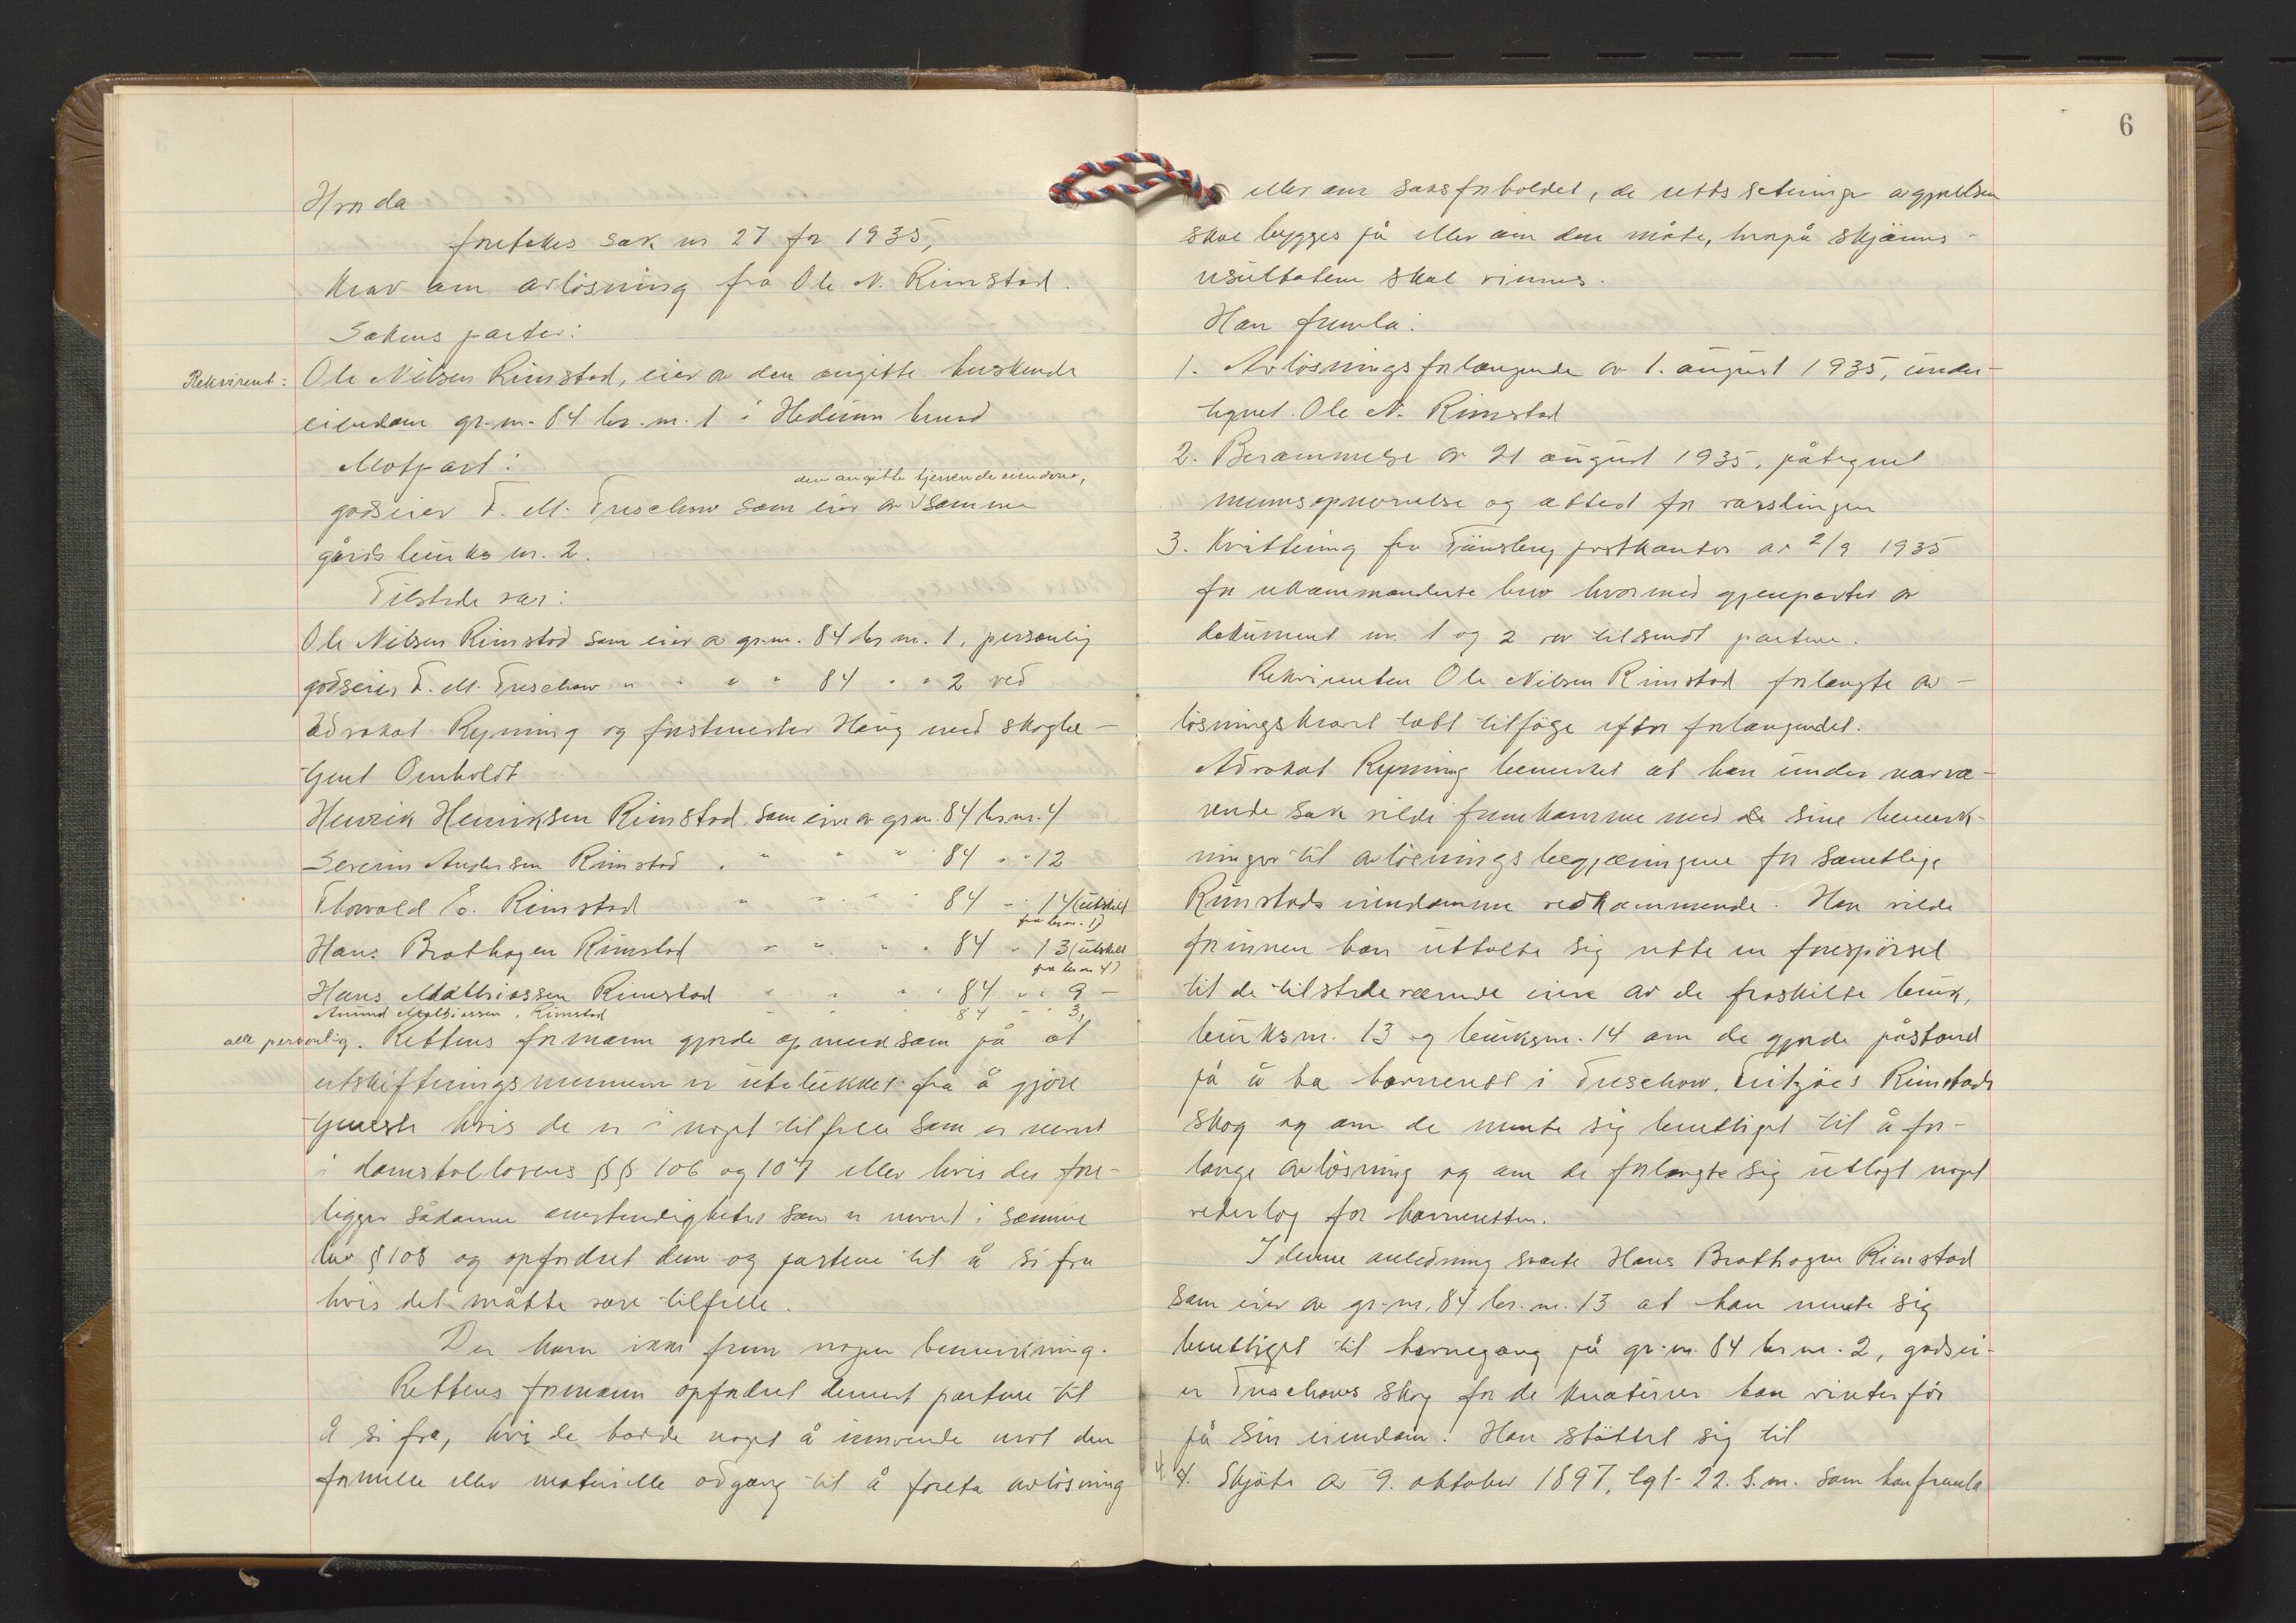 Hvorda
foretokes sak nr 27 for 1935,
krav om avløsning fra Ole N. Rimstad.
Sakens parter:
Rekvirent: Ole Nilsen Rimstad, eier av den angitte herskende
eiendom gr.nr. 84 br.nr. 1 i Hedrum herred
Motpart:
den angitte tjenende eiendom,
godseier F. M. Treschow som eier av samme
gårds bruks nr. 2.
Tilstede var:
Ole Nilsen Rimstad som eier av gr.nr. 84 br nr. 1, personlig
godseier F. M. Treschow " " " " 84 " " 2 ved
advokat Ryning og forstmester Haug med skogbe-
tjent Omholdt
Henrik Henriksen Rimstad som eier av gr.nr. 84 br.nr. 4
Severin Andersen Rimstad " " " " 84 " " 12
Thorvald E. Rimstad " " " " 84 " " 14 (utskilt
fra br.nr. 1)
Hans Brathagen Rimstad " " " " 84 " 13 (utskilt
fra br nr 4)
Hans Mathiassen Rimstad " " " " 84 " " 9 -
Anund Mathiassen, Rimstad " " " 84 " " 3,
alle personlig. Rettens formann gjorde opmerksom på at
utskiftningsmennene er utelukket fra å gjøre
tjeneste hvis de er i noget tilfelle som er nevnt
i domstollovens §§ 106 og 107 eller hvis der fore-
ligger sådanne omstendigheter som er nevnt i samme
lov § 108 og opfordret dem og partene til å si fra
hvis det måtte være tilfelle.
Der kom ikke frem nogen bemerkning.
Rettens formann opfordret dernest partene til
å si fra, hvis de hadde noget å innvende mot den
formelle eller materielle adgang til å foreta avløsning
6
eller om saksforholdet, de rettssetninger avgjørelsen
skal bygges på eller om den måte, hvorpå skjønns-
resultatene skal vinnes.
Han fremla:
1. Avløsningsforlangende av 1. august 1935, under-
tegnet Ole N. Rimstad
2. Berammelse av 21 august 1935, påtegnet
mennsopnevnelse og attest for varslingen
3. Kvittering fra Tønsberg postkontor av 2/9 1935
for rekommanderte brev hvormed gjenparter av
dokument nr. 1 og 2 var tilsendt partene.
Rekvirenten Ole Nilsen Rimstad forlangte av-
løsningskravet tatt tilfølge efter forlangendet.
Advokat Ryning bemerket at han under nærvæ-
rende sak vilde fremkomme med de sine bemerk-
ninger til avløsningsbegjæringene for samtlige
Rimstads eiendommene vedkommende. Han vilde
forinnen han uttalte sig rette en forespørsel
til de tilstedeværende eiere av de fraskilte bruk,
bruksnr. 13 og bruksnr. 14 om de gjorde påstand
på å ha havnerett i Treschow. Fritzøes Rimstads
skog og om de mente sig berettiget til å for-
lange avløsning og om de forlangte sig utlagt noget
vederlag for havneretten.
I denne anledning svarte Hans Brathagen Rimstad
som eier av gr.nr. 84 br.nr. 13 at han mente sig
berettiget til havnegang på gr.nr. 84 br nr. 2, godsei-
er Treschows skog for de kreaturer han vinterfør
på sin eiendom. Han støttet sig til
4. 4. Skjøte av 9. oktober 1897, tgl. 22. s.m. som han fremla